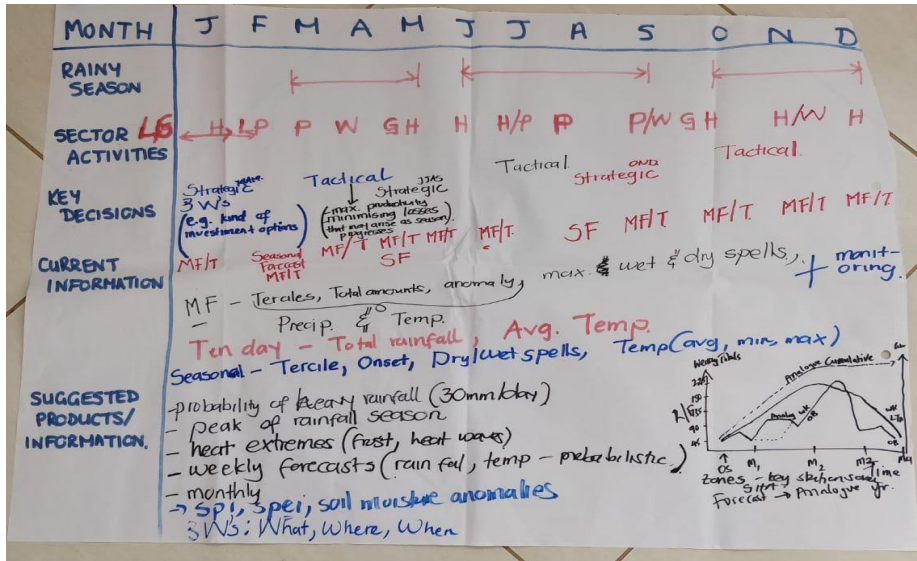 MONTH J F M A M J J A S O N D
RAINY
SEASON
SECTOR L/S H LP P W GH H H/P P P/W G H H/W H
ACTIVITIES
KEY
DECISIONS
Strategic MAM
3 W's
(e.g. kind of
investment options)
Tactical
Strategic JJAS
(max. productivity
minimising losses
that may arise as season
progresses)
Tactical
Strategic OND
Tactical
CURRENT
INFORMATION
MF/T
Seasonal
Forecast
MF/T
MF/T MF/T MF/T MF/T
SF
SF MF/T MF/T MF/T MF/T
MF - Terciles, Total amounts, anomaly, max. & wet & dry spells, + monit-
oring.
Precip. & Temp.
Ten day - Total rainfall, Avg. Temp.
Seasonal - Tercile, Onset, Dry/wet spells, Temp (avg, min, max)
SUGGESTED
PRODUCTS/
INFORMATION.
- probability of heavy rainfall (30mm/day)
- peak of rainfall season
- heat extremes (frost, heat waves)
- weekly forecasts (rain fal, temp - probabilistic)
- monthly
→ spi, spei, soil moisture anomalies
3 W's: What, Where, When
Weekly Totals
Analogue Cumulative
150
90
45
Analog WK
OB
WK
LTM
OB
OS M1 M2 M3 Time
Zones - key stations
Forecast → Analogue yr.